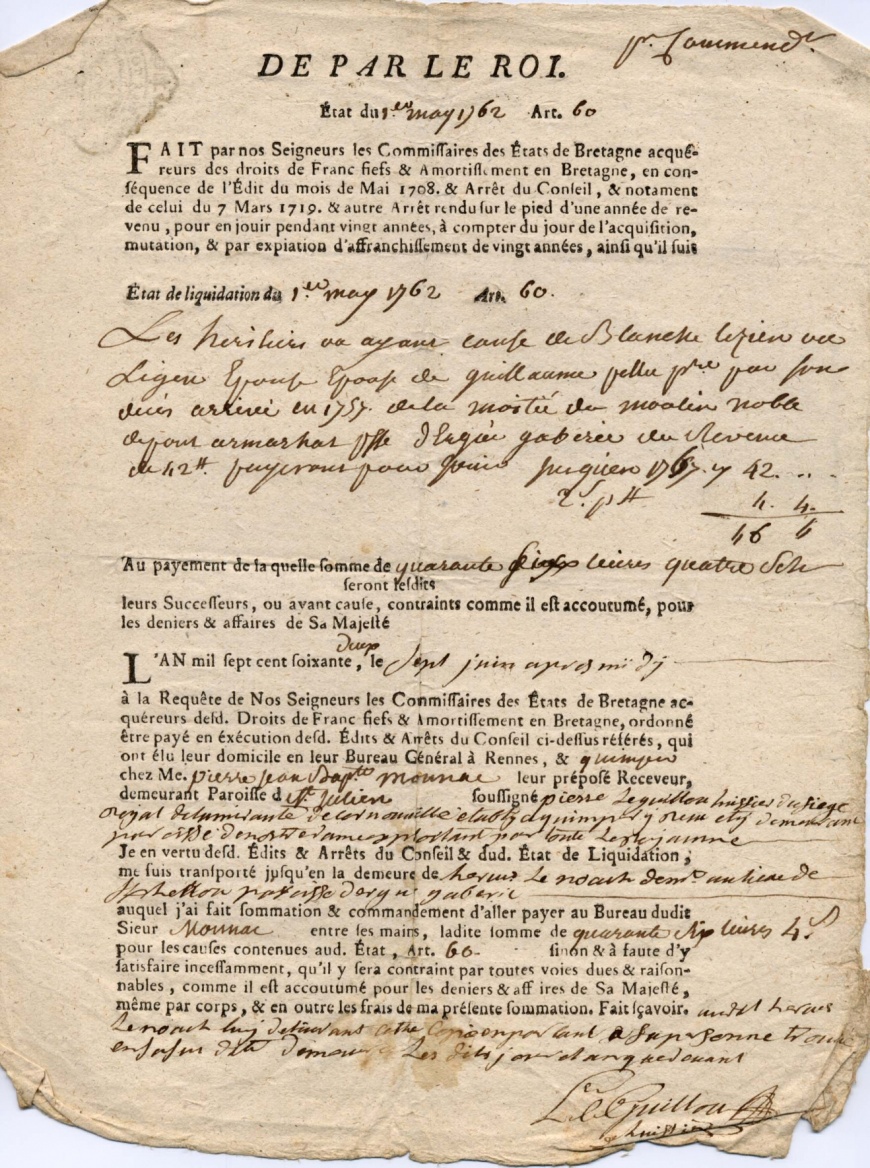 pr. Commendr
DE PAR LE ROI.
État du 1er may 1762 Art. 60
FAIT par nos Seigneurs les Commissaires des États de Bretagne acqué-
reurs des droits de Franc fiefs & Amortissement en Bretagne, en con-
séquence de l'Édit du mois de Mai 1708. & Arrêt du Conseil, & notament
de celui du 7 Mars 1719. & autre Arrêt rendu sur le pied d'une année de re-
venu, pour en jouir pendant vingt années, à compter du jour de l'acquisition,
mutation, & par expiation d'affranchissement de vingt années, ainsi qu'il suit
État de liquidation du 1er may 1762 Art. 60.
Les heritiers ou ayant cause de Blanche lizien ou
Ligen Epouse Epouse de guillaume pellu pre par son
déces arrivé en 1757. de la moitié du moulin noble
de pour armarhat psse d'Ergué gaberic du Revenu
de 42tt payeront pour jouir jusqu'en 1767. y 42. ..
2s. p tt 4. 4.
46 4
Au payement de la quelle somme de quarante six livres quatre sols
seront lesdits
leurs Successeurs, ou ayant cause, contraints comme il est accoutumé, pour
les deniers & affaires de Sa Majesté
deux
L'AN mil sept cent soixante, le Sept juin apres midy
à la Requête de Nos Seigneurs les Commissaires des États de Bretagne ac-
quéreurs desd. Droits de Franc fiefs & Amortissement en Bretagne, ordonné
être payé en éxécution desd. Édits & Arrêts du Conseil ci-dessus référés, qui
ont élu leur domicile en leur Bureau Général à Rennes, & quimper
chez Me. pierre jean Bapte Mounac leur préposé Receveur,
demeurant Paroisse d St. Julien soussigné pierre Le guillou huissier du siege
royal de lamirauté de cornouaille etably a quimper y demeurant
paroisse de notre dame exploitant par toute Le royaume
Je en vertu desd. Édits & Arrêts du Conseil & dud. État de Liquidation,
me suis transporté jusqu'en la demeure de herve Le noach demt. au lieu de
paroisse dergue gaberic
auquel j'ai fait sommation & commandement d'aller payer au Bureau dudit
Sieur Mounac entre ses mains, ladite somme de quarante six livres 4s
pour les causes contenues aud. État, Art. 60. sinon & à faute d'y
satisfaire incessamment, qu'il y sera contraint par toutes voies dues & raison-
nables, comme il est accoutumé pour les deniers & affaires de Sa Majesté,
même par corps, & en outre les frais de ma présente sommation. Fait sçavoir. audit herve
Le noach luy delivrant cette copie en parlant a Sa personne trouvé
en sa susditte demeure Les dits jour et an que devant
Le Guillou
huissier